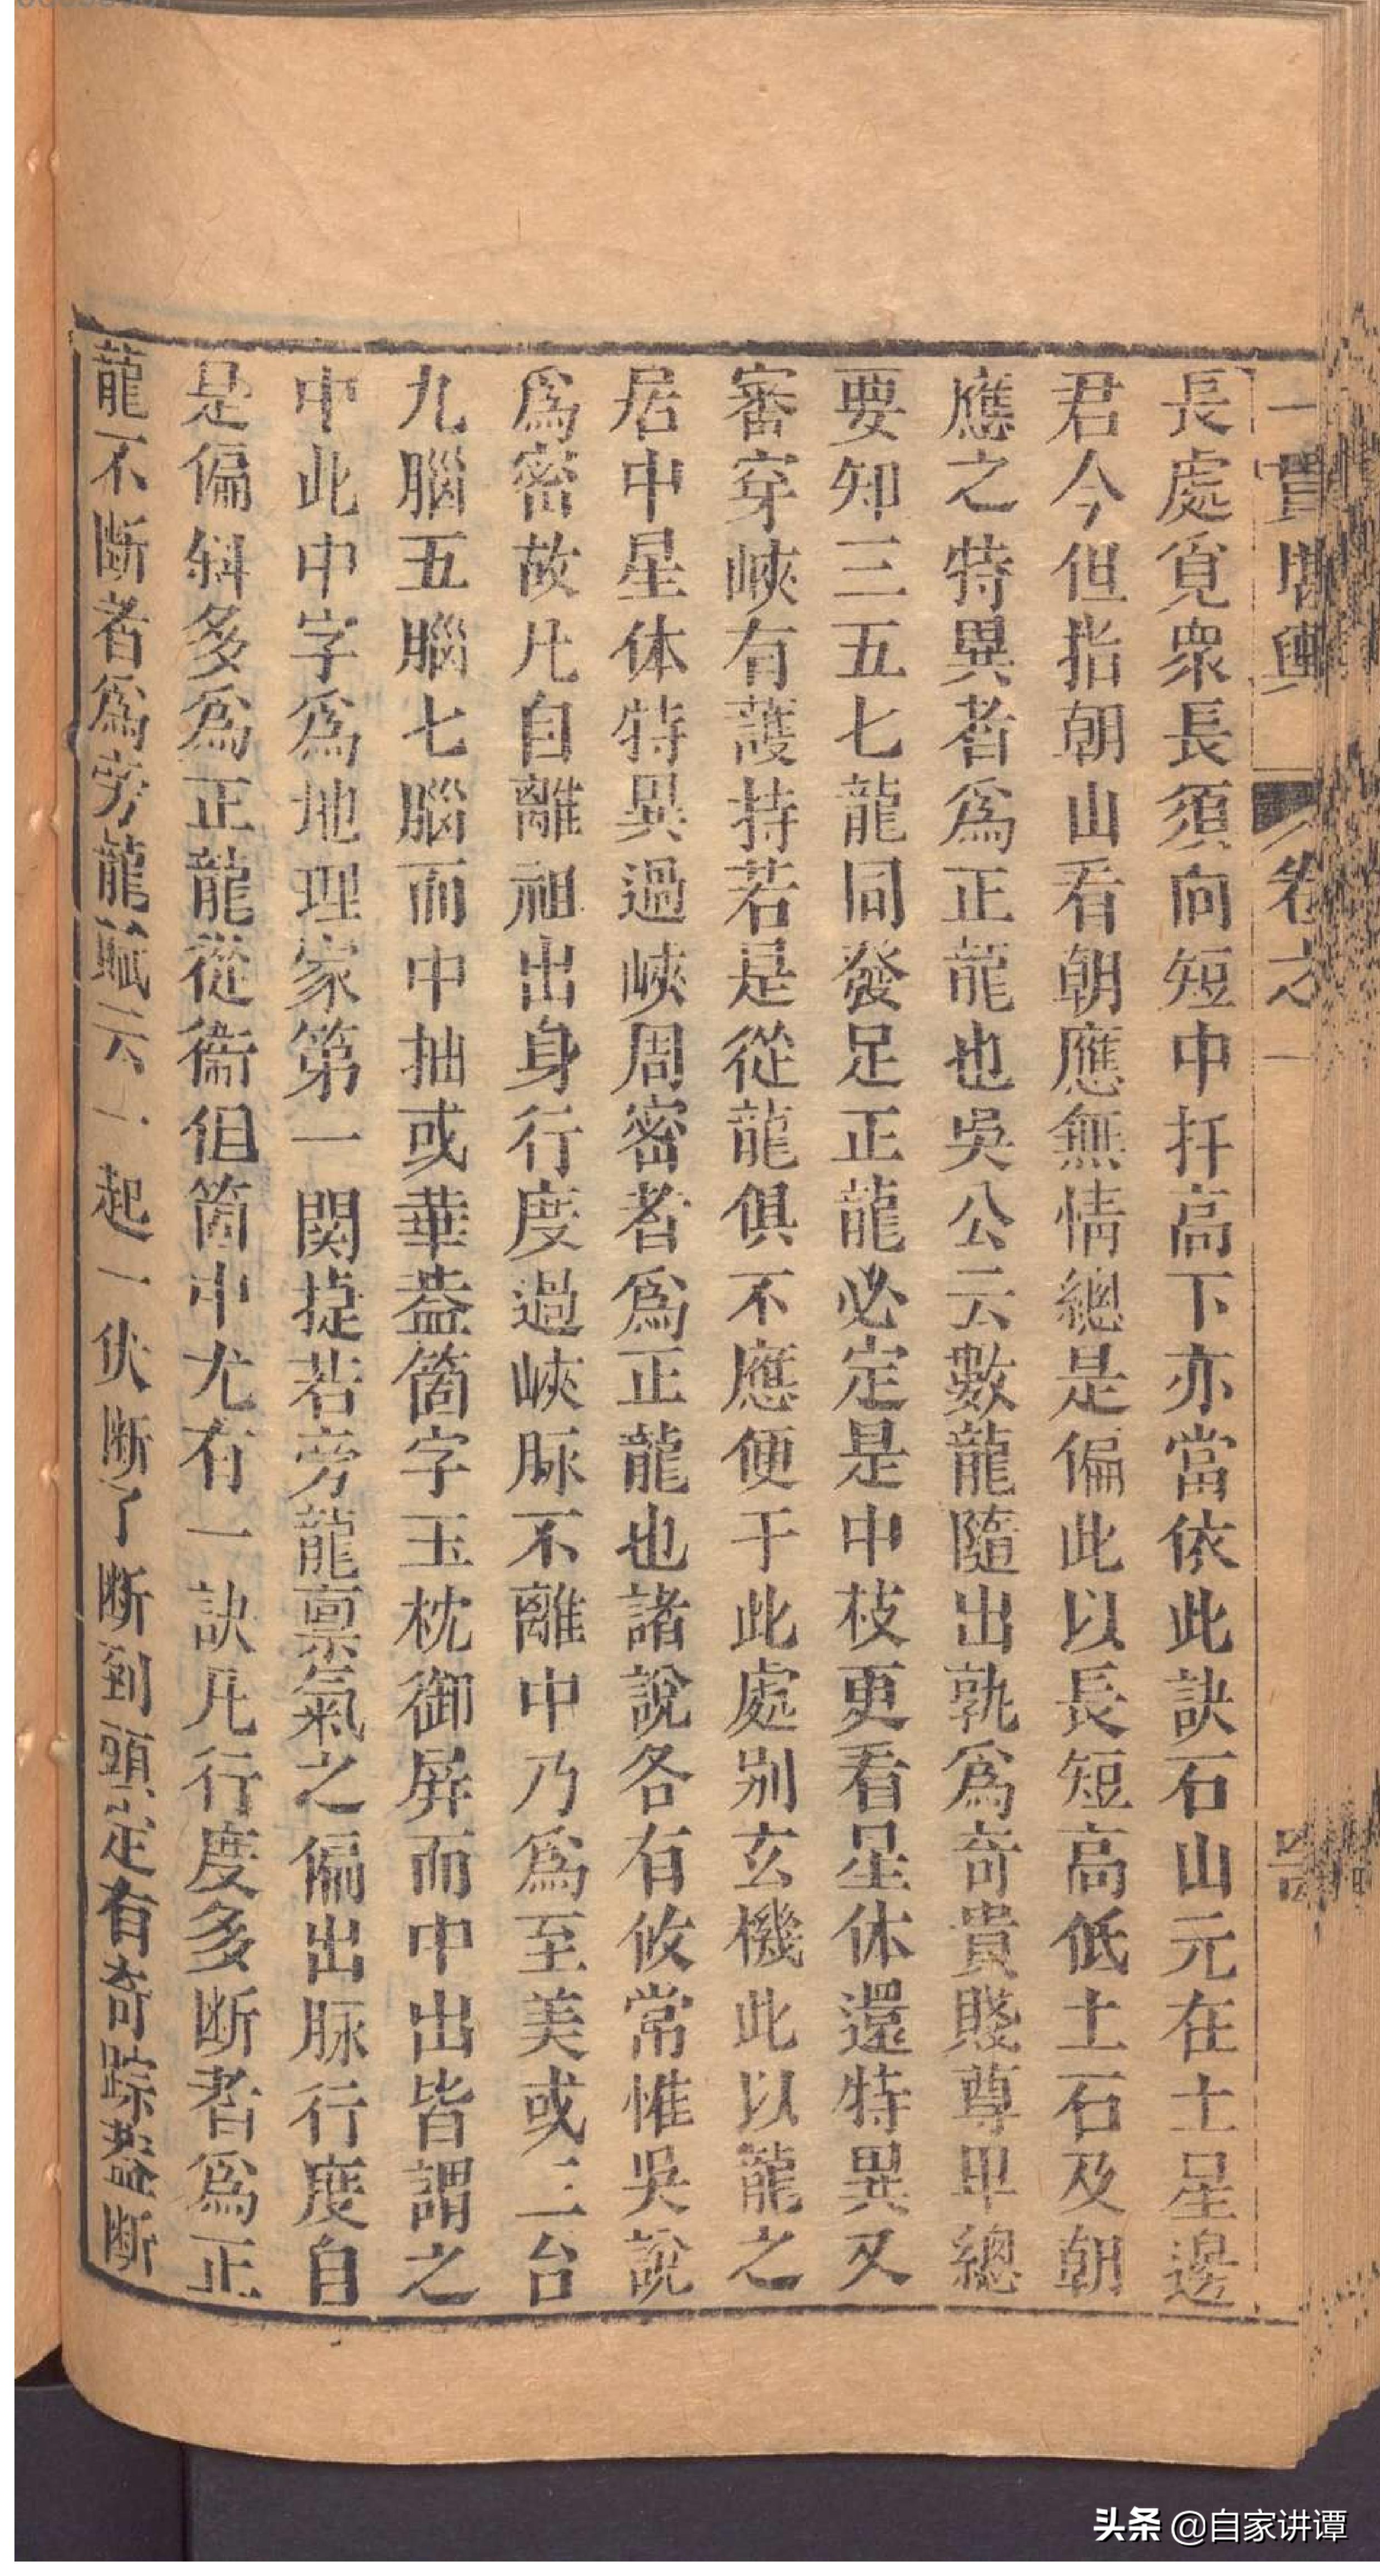 一貫堪輿 卷之一
長處覓衆長須向短中扦高下亦當依此訣石山元在土星邊
君今但指朝山看朝應無情總是偏此以長短高低土石及朝
應之特異者爲正龍也吳公云數龍隨出孰爲奇貴賤尊卑總
要知三五七龍同發足正龍必定是中枝更看星休還特異又
審穿峽有護持若是從龍俱不應便于此處别玄機此以龍之
居中星体特異過峽周密者爲正龍也諸說各有攸當惟吳說
爲密故凡自離祖出身行度過峽脉不離中乃爲至美或三台
九腦五腦七腦而中抽或華盖箇字玉枕御屏而中出皆謂之
中此中字爲地理家第一関捷若旁龍禀氣之偏出脉行度自
是偏斜多爲正龍從衞但箇中尤有一訣凡行度多断者爲正
龍不断者爲旁龍賦云一起一伏断了断到頭定有奇踪盖断
头条 @自家讲谭